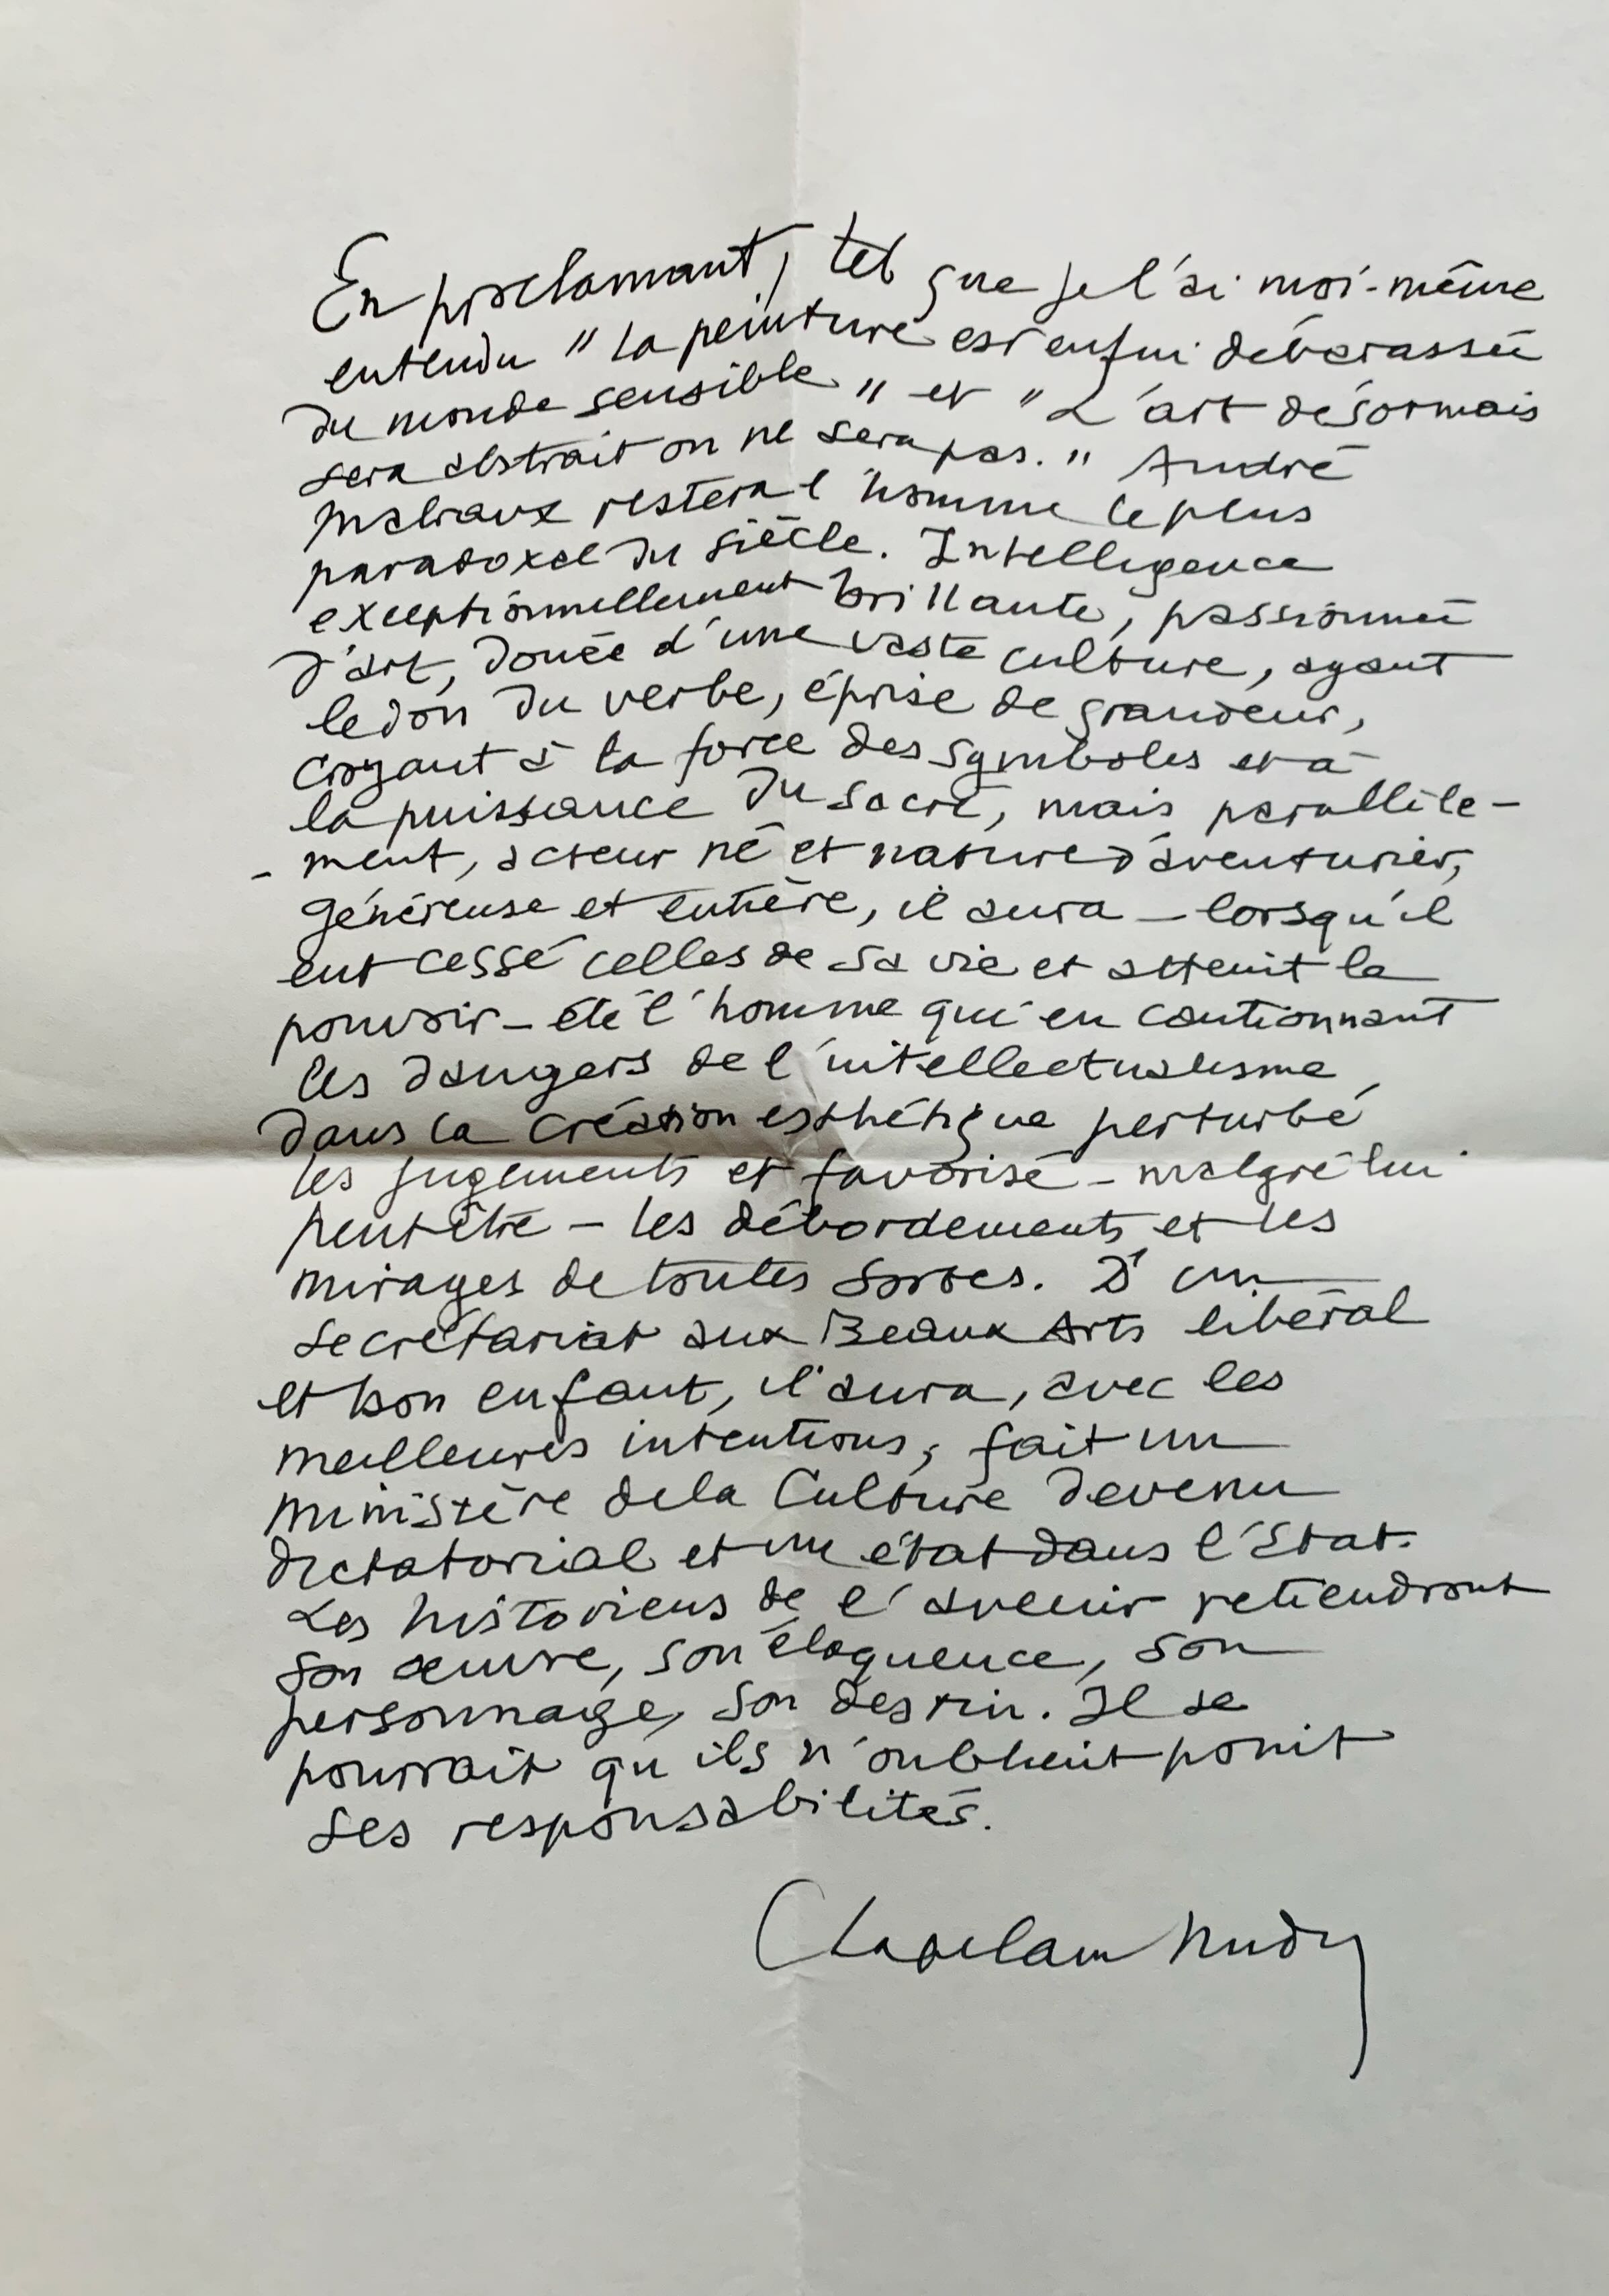 En proclamant, tel que je l'ai moi-même
entendu " la peinture est enfin débarassée
du monde sensible " et " L'art désormais
sera abstrait ou ne sera pas. " André
Malraux restera l'homme le plus
paradoxal du siècle. Intelligence
exceptionnellement brillante, passionnée
d'art, douée d'une vaste culture, ayant
le don du verbe, éprise de grandeur,
croyant à la force des symboles et à
la puissance du sacré, mais parallèle-
- ment, acteur né et nature d'aventurier,
généreuse et entière, il aura - lorsqu'il
eut cessé celles de sa vie et atteint le
pouvoir - été l'homme qui en cautionnant
les dangers de l'intellectualisme
dans la création esthétique perturbé
les jugements et favorisé - malgré lui
peut être - les débordements et les
mirages de toutes sortes. D'un
secrétariat aux Beaux Arts libéral
et bon enfant, il aura, avec les
meilleures intentions, fait un
ministère de la Culture devenu
dictatorial et un état dans l'Etat.
Les historiens de l'avenir retiendront
son œuvre, son éloquence, son
personnage, son destin. Il se
pourrait qu'ils n'oublient point
ses responsabilités.
Chapelain Midy